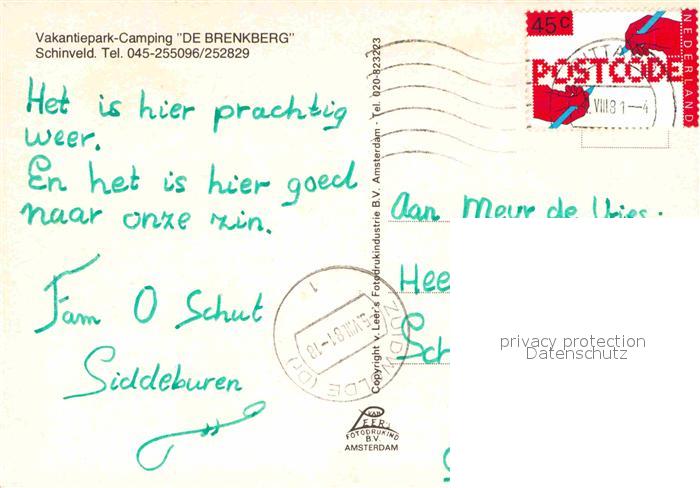 Vakantiepark-Camping "DE BRENKBERG"
Schinveld. Tel. 045-255096/252829
Het is hier prachtig
weer.
En het is hier goed
naar onze zin.
Fam O Schut
Siddeburen
Copyright v. Leer's Fotodrukindustrie B.V. Amsterdam - Tel. 020-823223
45 c
NEDERLAND
POSTCODE
VIII 81-4
ZUIDWOLDE (Dr)
VIII.81-18
1
Aan Mevr de Vries.
Hee
Sch
privacy protection
Datenschutz
VAN
LEER'S
FOTODRUKIND
B.V.
AMSTERDAM